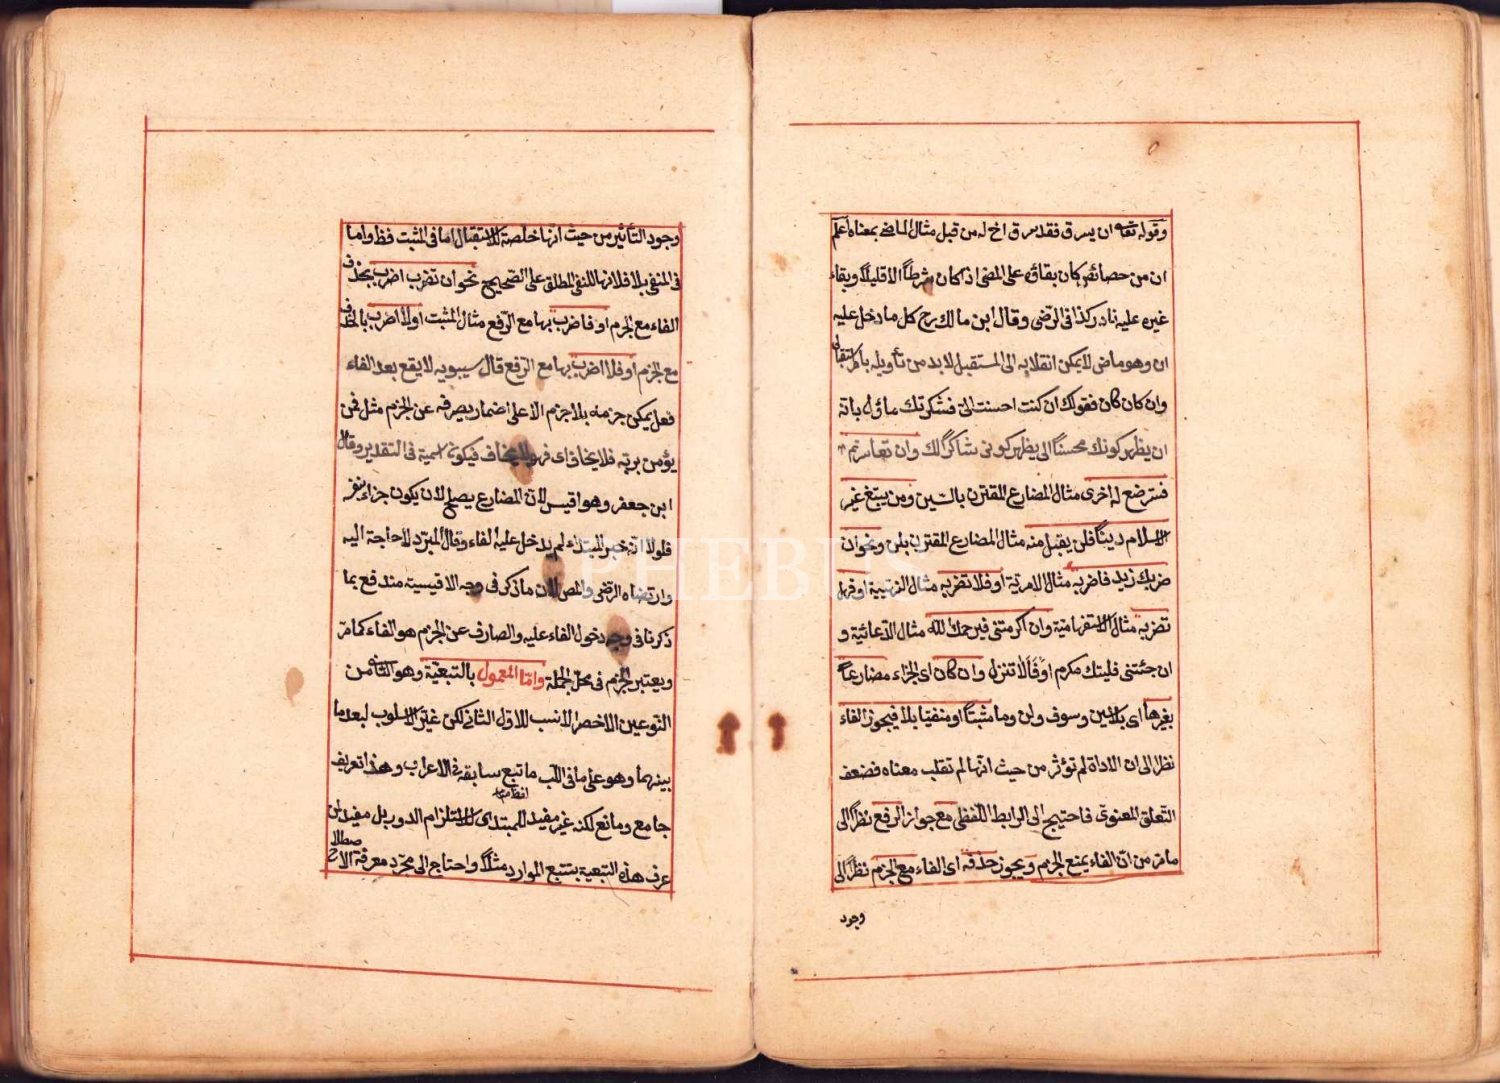 وقوله تعه ان يسرق فقد سرق اخ له من قبل مثال الماضى بمعناه اعلم
ان من خصائص كان بقاؤه على المضى اذا كان شرطاً الا قليلاً وبقاء
غيره عليه نادر كذا فى الرضى وقال ابن مالك رح كل ما دخل عليه
ان وهو ماض لا يمكن انقلابه الى المستقبل لابد من تأويله بالمستقبل
وان كان كان فقولك ان كنت احسنت الى فشكرتك ماؤل بانه
ان يظهر كونك محسناً الى يظهر كونى شاكراً لك وان تعاسرتم
فسترضع له اخرى مثال المضارع المقترن بالسين ومن يبتغ غير
الاسلام ديناً فلن يقبل منه مثال المضارع المقترن بلن ونحو ان
ضربك زيد فاضربه مثال الامرية او فلا تضربه مثال النهيية او فهل
تضربه مثال الاستفهامية وان اكرمتنى فيرحمك الله مثال الدعائية و
ان جئتنى فليتك مكرم او فألا تنزل وان كان اى الجزاء مضارعاً
بغيرها اى بلا سين وسوف ولن وما مثبتاً او منفيا بلا فيجوز الفاء
نظرا الى ان الاداة لم تؤثر من حيث انها لم تقلب معناه فضعف
التعلق المعنوى فاحتيج الى الرابط اللفظى مع جواز الرفع نظراً الى
ما مر من ان الفاء يمنع الجزم ويجوز حذفه اى الفاء مع الجزم نظراً الى
وجود
وجود التأثير من حيث انها خلصته للاستقبال اما فى المثبت فظ واما
فى المنفى بلا فلانها للنفى المطلق على الصحيح نحو ان تضرب اضرب بحذف
الفاء مع الجزم او فاضرب بها مع الرفع مثال المثبت او لا اضرب بالحذف
مع الجزم او فلا اضرب بها مع الرفع قال سيبويه لا يقع بعد الفاء
فعل يمكن جزمه بلا جزم الا على اضمار يصرفه عن الجزم مثل فمن
يؤمن بربه فلا يخاف اى فهو لا يخاف فيكون اسمية فى التقدير وقال
ابن جعفر وهو اقيس لان المضارع يصلح لان يكون جزاء بنفسه
فلولا انه خبر المبتداء لم يدخل عليه الفاء وقال المبرد لا حاجة اليه
وارتضاه الرضى والمص لان ما ذكر فى وجه الاقيسية مندفع بما
ذكرنا فى وجه دخول الفاء عليه والصارف عن الجزم هو الفاء كما مر
ويعتبر الجزم فى محل الجملة واما المعمول بالتبعية وهو الثانى من
النوعين الاخصر الانسب للاول الثانى لكن غير الاسلوب لبعد ما
بينهما وهو على ما فى اللب ما تبع سابقه فى الاعراب وهذا تعريف
جامع ومانع لكنه غير مفيد للمبتدى لاستلزام الدور بل مفيد لمن
عرف هذه التبعية بتتبع الموارد مثلاً واحتاج الى مجرد معرفة الاصطلاح
PHEBUS